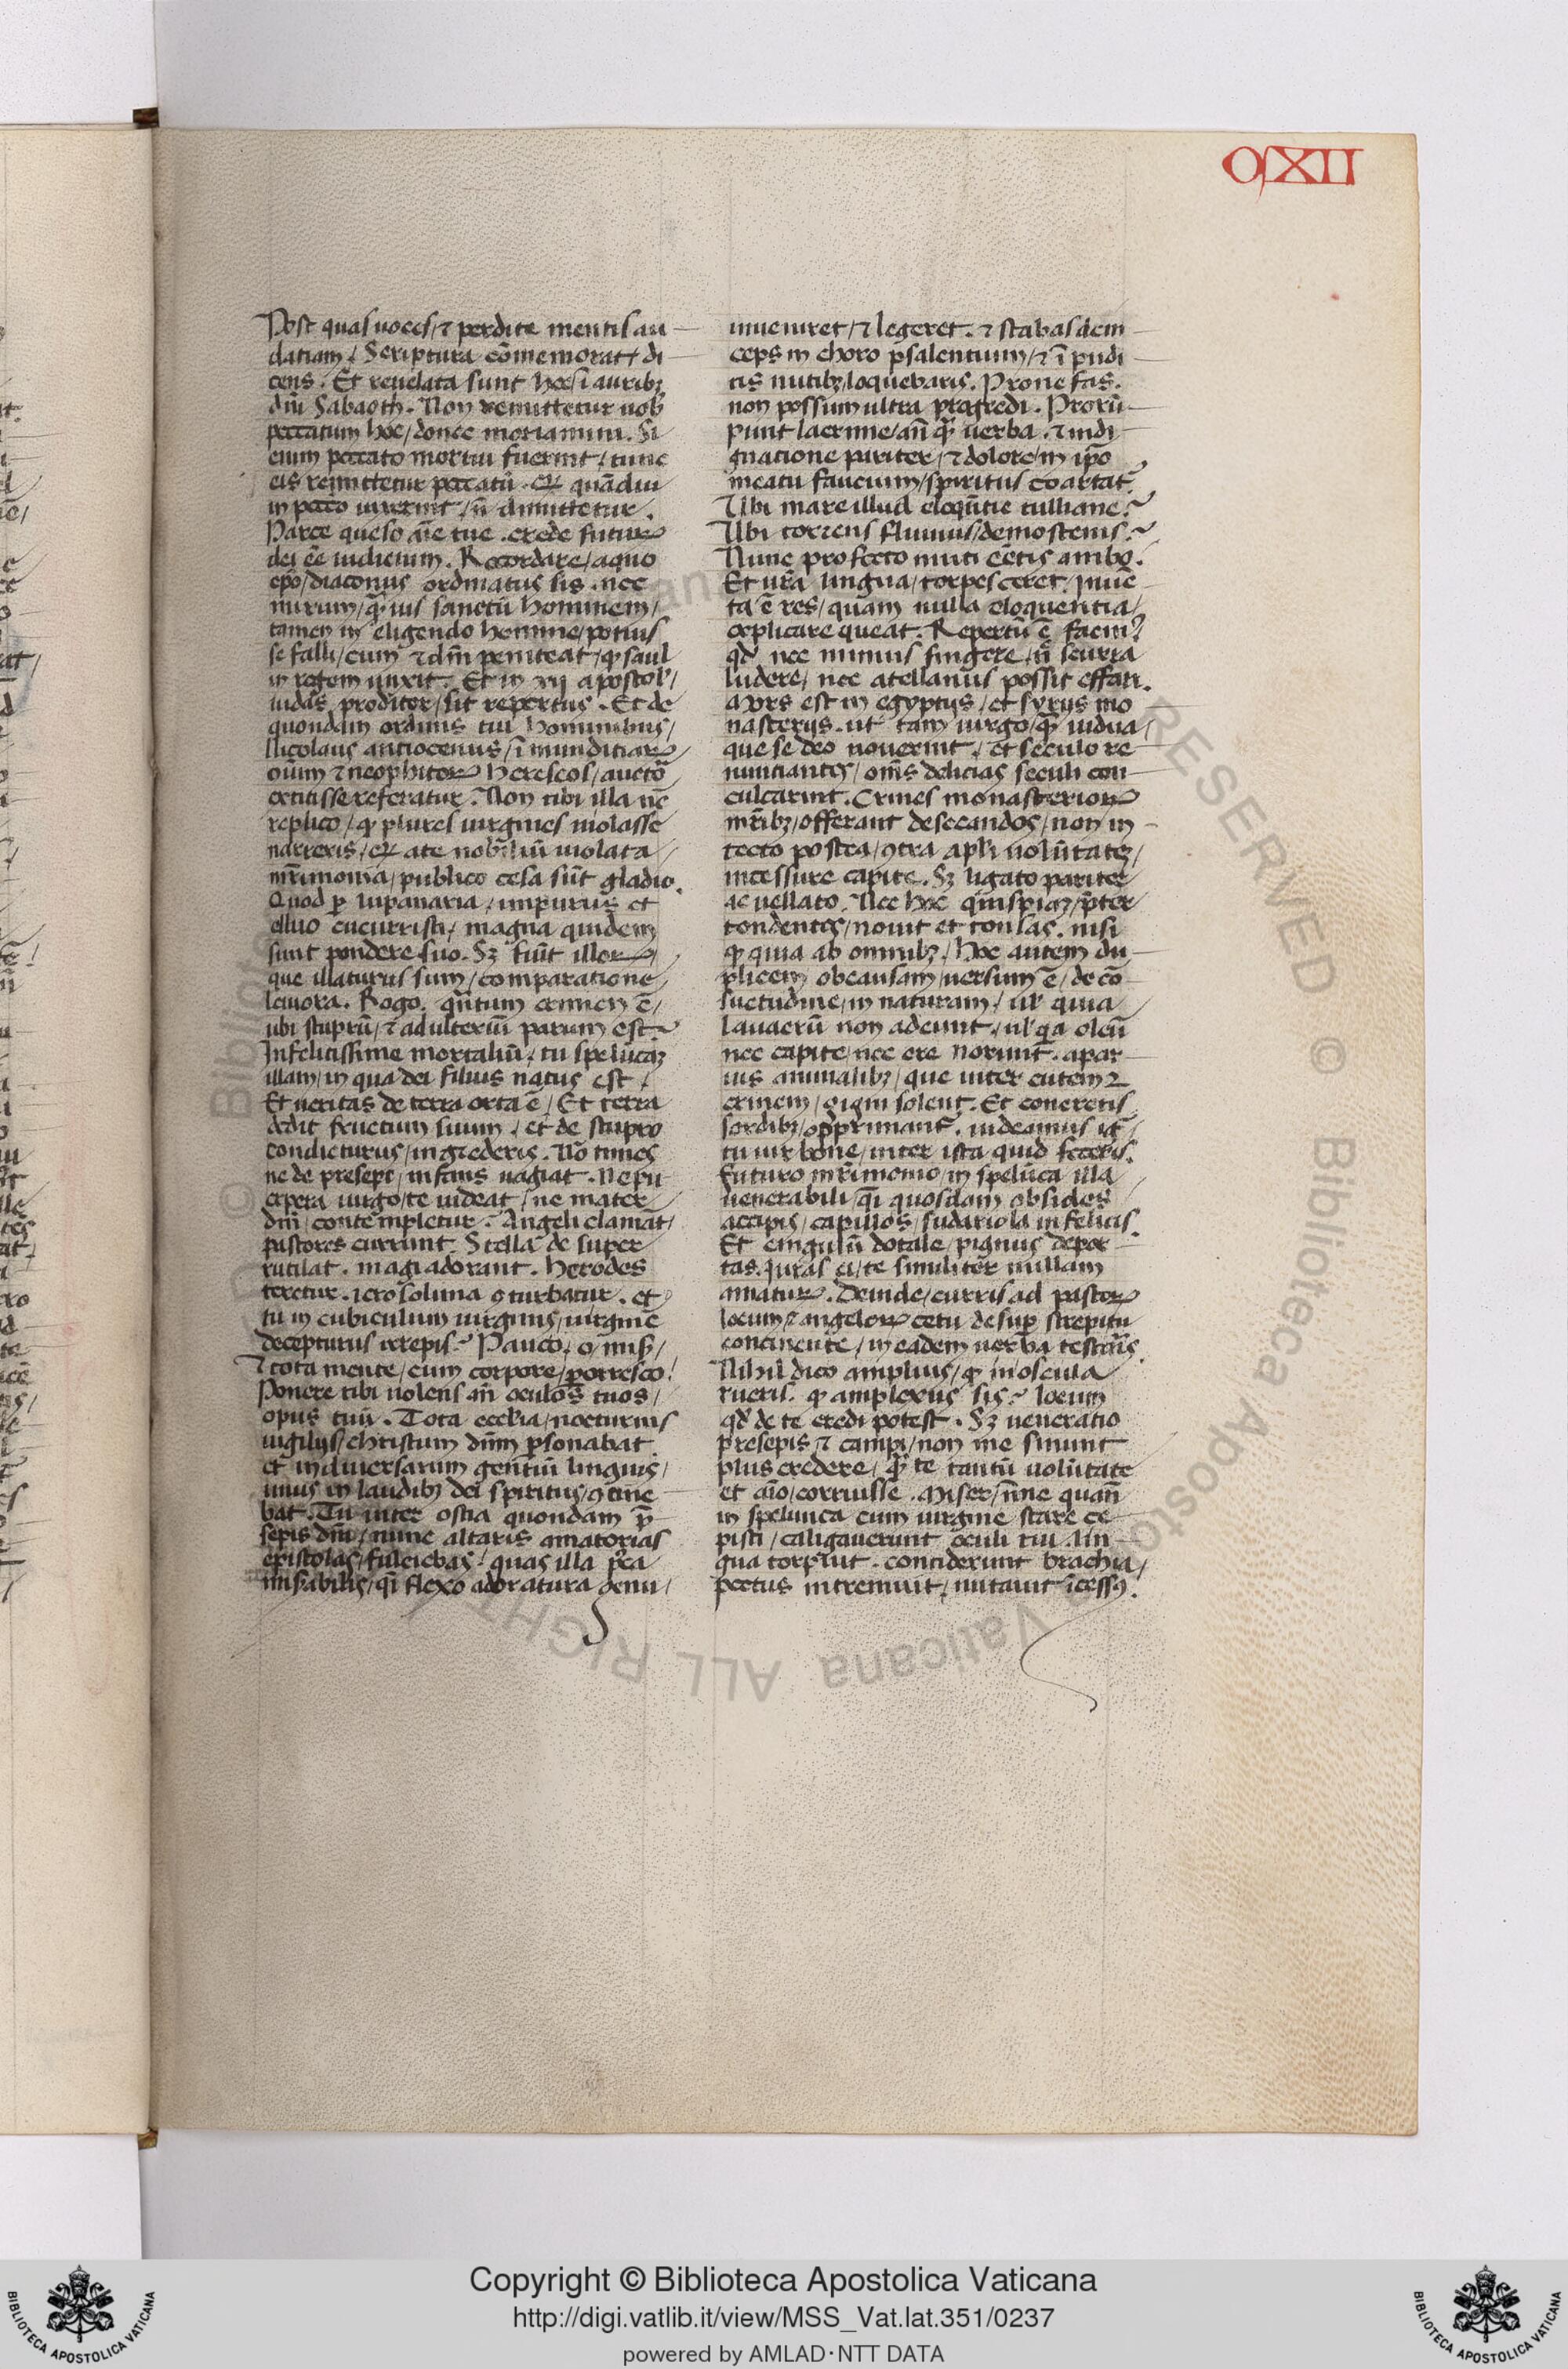 O/XII
Post quas uoces/⁊ perdite mentis au
datiam/ Scriptura cōmemorat/ di
cens. Et reuelata sunt hec ī auribꝫ
dn̄i Sabaoth. Non remittetur uob̄
peccatum hoc/donec moriamini. Si
enim peccato mortui fuerint/tunc
eis remittetur peccatū. quādiu
in pccō uixerint/n̄ dimittetur.
Parce queso aīe tue. crede futurꝝ
dei eē iudicium. Recordare/aquo
epō/diaconus ordinatus sis. nec
mirum/ꝙuis sanctū hominem/
tamen in eligendo homine/potius
se falli/cum ⁊ dm̄ peniteat/ꝙ saul
in regem unxit. Et in xij apostol'/
iudas proditor/sit repertus. Et de
quondam ordinis tui hominibus/
Nicolaus antiocenus/ī munditiarꝝ
oīum ⁊ neophitorꝝ hereseos/auctō
extitisse referatur. Non tibi illa nc̄
replico/ꝙ plures uirgines uiolasse
narreris/ ate nobiliū uiolata
mr̄imonia/publico cesa sūt gladio.
Quod ꝑ lupanaria/impurus et
elluo cucurristi/magna quidem
sunt pondere suo. Sꝫ fiūt illorꝝ/
que illaturus sum/comparatione
leuiora. Rogo. qn̄tum crimen ē/
ubi stuprū/⁊ adulteriū parum est?
Infelicissime mortaliū/tu speluncaꝫ
illam/in qua dei filius natus est/
Et ueritas de terra orta ē/Et terra
dedit fructum suum/et de stupro
condicturus/ingrederis. Nō times
ne de presepe/infans uagiat. Ne pu
erpera uirgo/te uideat/ne mater
dn̄i/contempletur. Angeli clamāt/
pastores currunt. Stella de super
rutilat. magi adorant. herodes
teretur. ierosoluma ꝯturbatur. et
tu in cubiculum uirginis/uirginē
decepturus irrepis? Paueo/o/mis̄/
⁊ tota mente/cum corpore/porresco!
Ponere tibi uolens an̄ oculos tuos/
opus tuū. Tota ecclia/nocturnis
uigilijs/christum dn̄m ꝑsonabat
et in diuersarum gentiū linguis/
unus in laudibꝫ dei spiritus/ꝯcine
bat. Tu inter ostia quondam p̄
sepis dn̄i/nunc altaris amatorias
epistolas/fulciebas/quas illa p̄ea
mis̄abilis/q̄i flexo adoratura genu/
inueniret/⁊ legeret. ⁊ stabas dein
ceps in choro psalentium/⁊ ī pudi
cis nutibꝫ/loquebaris. Prone fas.
non possum ultra progredi. Prorū
punt lacrime/an̄ ꝙ̄ uerba. ⁊ indi
gnatione pariter/⁊ dolore/in ipō
meatu faucium/spiritus coartat̄.
Ubi mare illud eloqūtie tulliane?
Ubi torrens fluuius/demostenis?
Nunc profecto muti eētis ambo.
Et ur̄a lingua/torpesceret. Inuē
ta ē res/quam nulla eloquentia/
explicare queat. Repertū ē facin᷒
qd̓ nec mimus fingere/n̄ scurra
ludere/nec atellanus possit effari.
Mors est in egyptijs/et syrijs mo
nasterijs. ut tam uirgo/ꝙ̄ uidua/
que se deo nouerint/et seculo re
nuntiantes/om̄s delicias seculi con
culcarint. Crines monasteriorꝝ
mr̄ibꝫ/offerant desecandos/non in
tecto postea/ꝯtra apl̓i uolūtateꝫ/
incessure capite. Sꝫ ligato pariter
ac uellato. Nec hoc q̄inspiaꝫ/p̄ter
tondentes/nouit et tonsas. nisi
ꝙ quia ab omnibꝫ/hoc autem du
plicem obcausam/uersum ē/de cō
suetudine/in naturam/ul' quia
lauacrū non adeunt/ul' qa oleū
nec capite/nec ore norunt. apar
uis animalibꝫ/que inter cutem ⁊
crinem/gigni solent. Et concretis
sordibꝫ/opprimant̄. uideamus igr̄/
tu uir bone/inter ista quid feceris.
Futuro mr̄imonio/in spelūca illa
uenerabili/q̄i quosdam obsides
accipis/capillos/sudariola infelicis.
Et cingulū dotale/pignus depor
tas. Iuras ei/te similiter nullam
amaturꝝ. Deinde/curris ad pastorꝝ
locum/⁊ angelorꝝ cetu desuꝑ strepitu
concinente/in eadem uerba testaris
Nihil dico amplius/ꝙ in oscula
rueris. ꝙ amplexus sis? locum
qd̓ de te credi potest. Sꝫ ueneratio
presepis ⁊ campi/non me sinunt
plus credere/ꝙ̄ te tantū uolūtate
et aīo/corruisse. Miser/nn̄e quan̄
in spelunca cum uirgine stare ce
pisti/caligauerunt oculi tui. lin
gua torpuit. conciderunt brachia/
pectus intremuit/nutauit īcessꝰ.
Copyright © Biblioteca Apostolica Vaticana
http://digi.vatlib.it/view/MSS_Vat.lat.351/0237
powered by AMLAD·NTT DATA
BIBLIOTECA APOSTOLICA VATICANA
BIBLIOTECA APOSTOLICA VATICANA